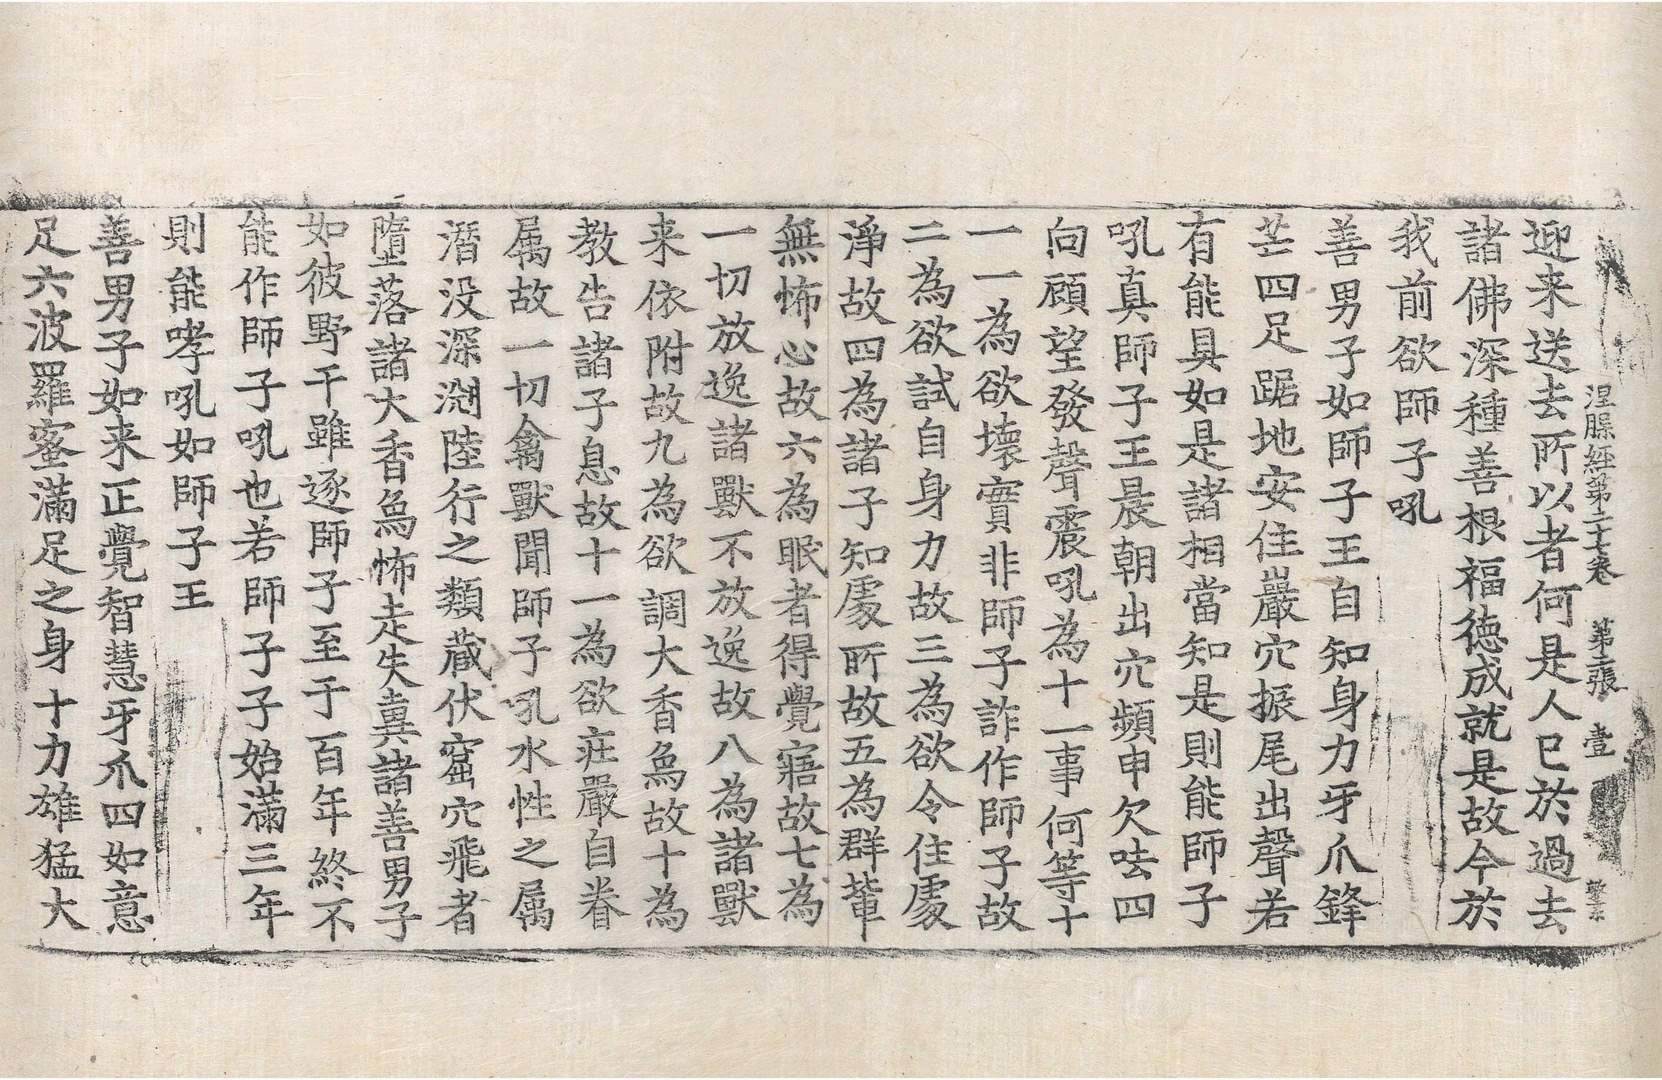 涅縣經第二十七卷　第三張　壹
迎来送去所以者何是人已於過去
諸佛深種善根福徳成就是故今於
我前欲師子吼
善男子如師子王自知身力牙爪鋒
芒四足踞地安住巖穴振尾出聲若
有能具如是諸相當知是則能師子
吼真師子王晨朝出穴頻申欠呿四
向顧望發聲震吼為十一事何等十
一一為欲壞實非師子詐作師子故
二為欲試自身力故三為欲令住處
淨故四為諸子知處所故五為群輩
無怖心故六為眠者得覺寤故七為
一切放逸諸獸不放逸故八為諸獸
来依附故九為欲調大香象故十為
教告諸子息故十一為欲莊嚴自眷
属故一切禽獸聞師子吼水性之属
潛没深淵陸行之類藏伏窟穴飛者
墮落諸大香象怖走失糞諸善男子
如彼野干雖逐師子至于百年終不
能作師子吼也若師子子始滿三年
則能哮吼如師子王
善男子如来正覺智慧牙爪四如意
足六波羅蜜滿足之身十力雄猛大